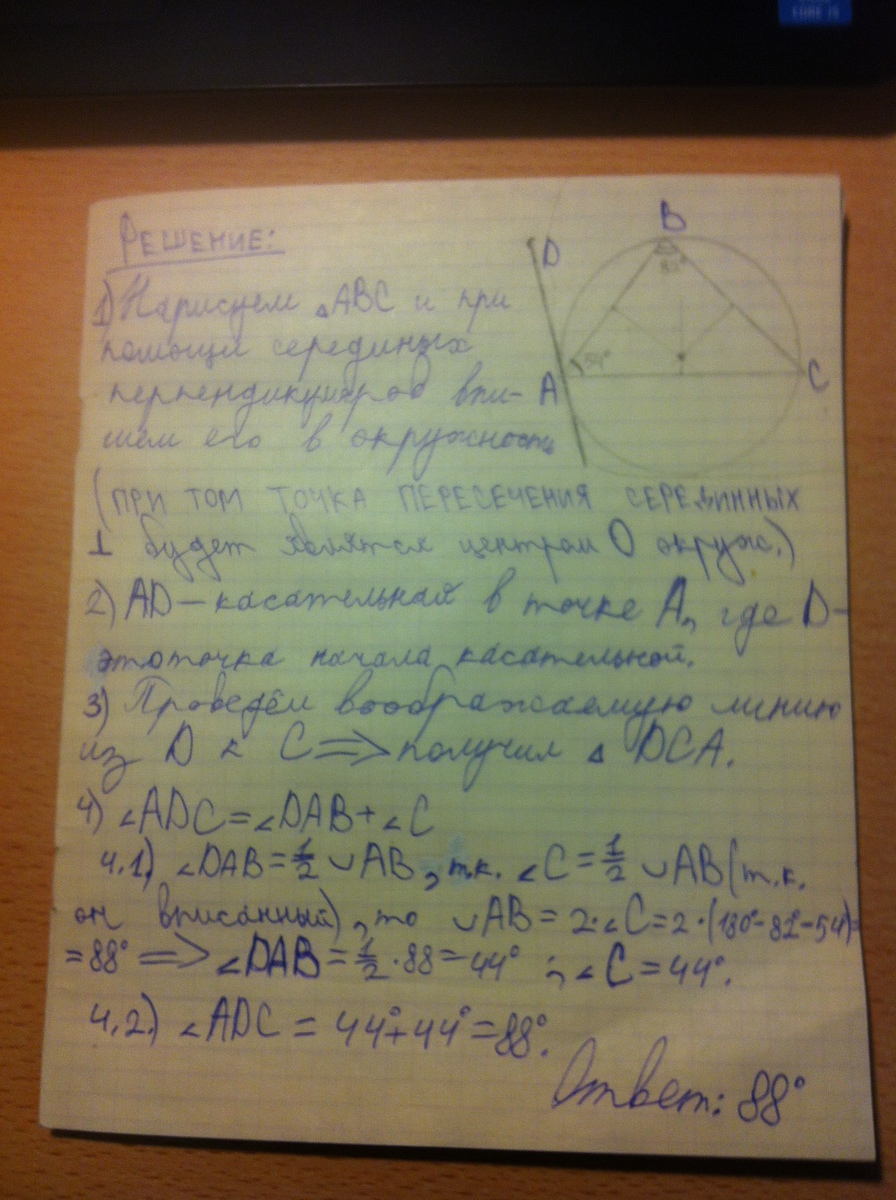 CORE i5
РЕШЕНИЕ:
1) Нарисуем △ABC и при
помощи серединных
перпендикуляров впи-
шем его в окружность
(ПРИ ТОМ ТОЧКА ПЕРЕСЕЧЕНИЯ СЕРЕДИННЫХ
⊥ будет являтся центром O окруж.)
2) AD — касательная в точке A, где D-
это точка начала касательной.
3) Проведём воображаемую линию
из D к C ⟹ получил △ DCA.
4) ∠ADC = ∠DAB + ∠C
4.1) ∠DAB = 1/2 ∪AB, т.к. ∠C = 1/2 ∪AB (т.к.
он вписанный), то ∪AB = 2·∠C = 2·(180°-82°-54°)=
= 88° ⟹ ∠DAB = 1/2·88 = 44° ; ∠C = 44°.
4.2.) ∠ADC = 44°+44° = 88°.
Ответ: 88°
D
B
82°
54°
A
C